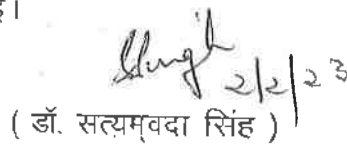 है।
Singh
2/2/23
( डॉ. सत्यम्वदा सिंह )